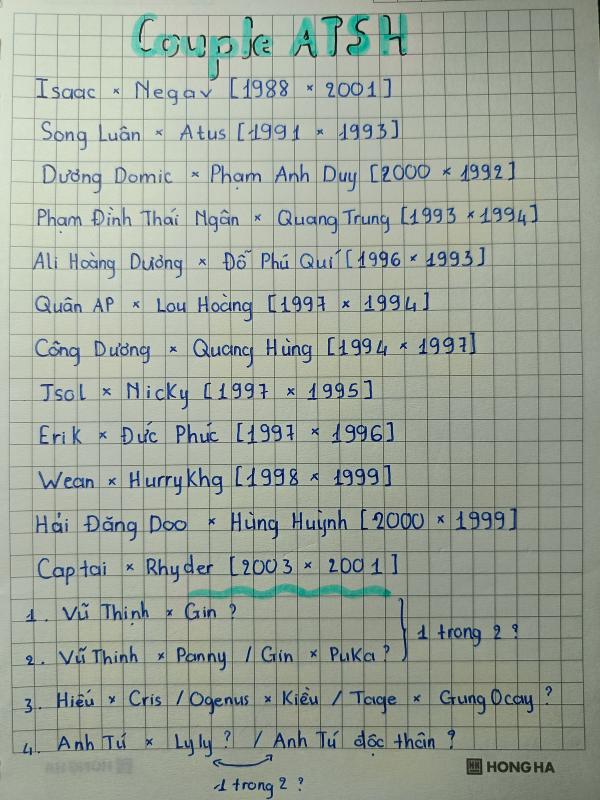 Couple ATSH
Isaac × Negav [1988 × 2001]
Song Luân × Atus [1991 × 1993]
Dương Domic × Phạm Anh Duy [2000 × 1992]
Phạm Đình Thái Ngân × Quang Trung [1993 × 1994]
Ali Hoàng Dương × Đỗ Phú Quí [1996 × 1993]
Quân AP × Lou Hoàng [1997 × 1994]
Công Dương × Quang Hùng [1994 × 1997]
Jsol × Nicky [1997 × 1995]
Erik × Đức Phúc [1997 × 1996]
Wean × HurryKhg [1998 × 1999]
Hải Đăng Doo × Hùng Huỳnh [2000 × 1999]
Captai × Rhyder [2003 × 2001]
1. Vũ Thịnh × Gin ?
2. Vũ Thinh × Panny / Gin × PuKa ?
1 trong 2 ?
3. Hiếu × Cris / Ogenus × Kiều / Tage × Gung Ocay ?
4. Anh Tú × Lyly ? / Anh Tú độc thân ?
1 trong 2 ?
HH HONG HA